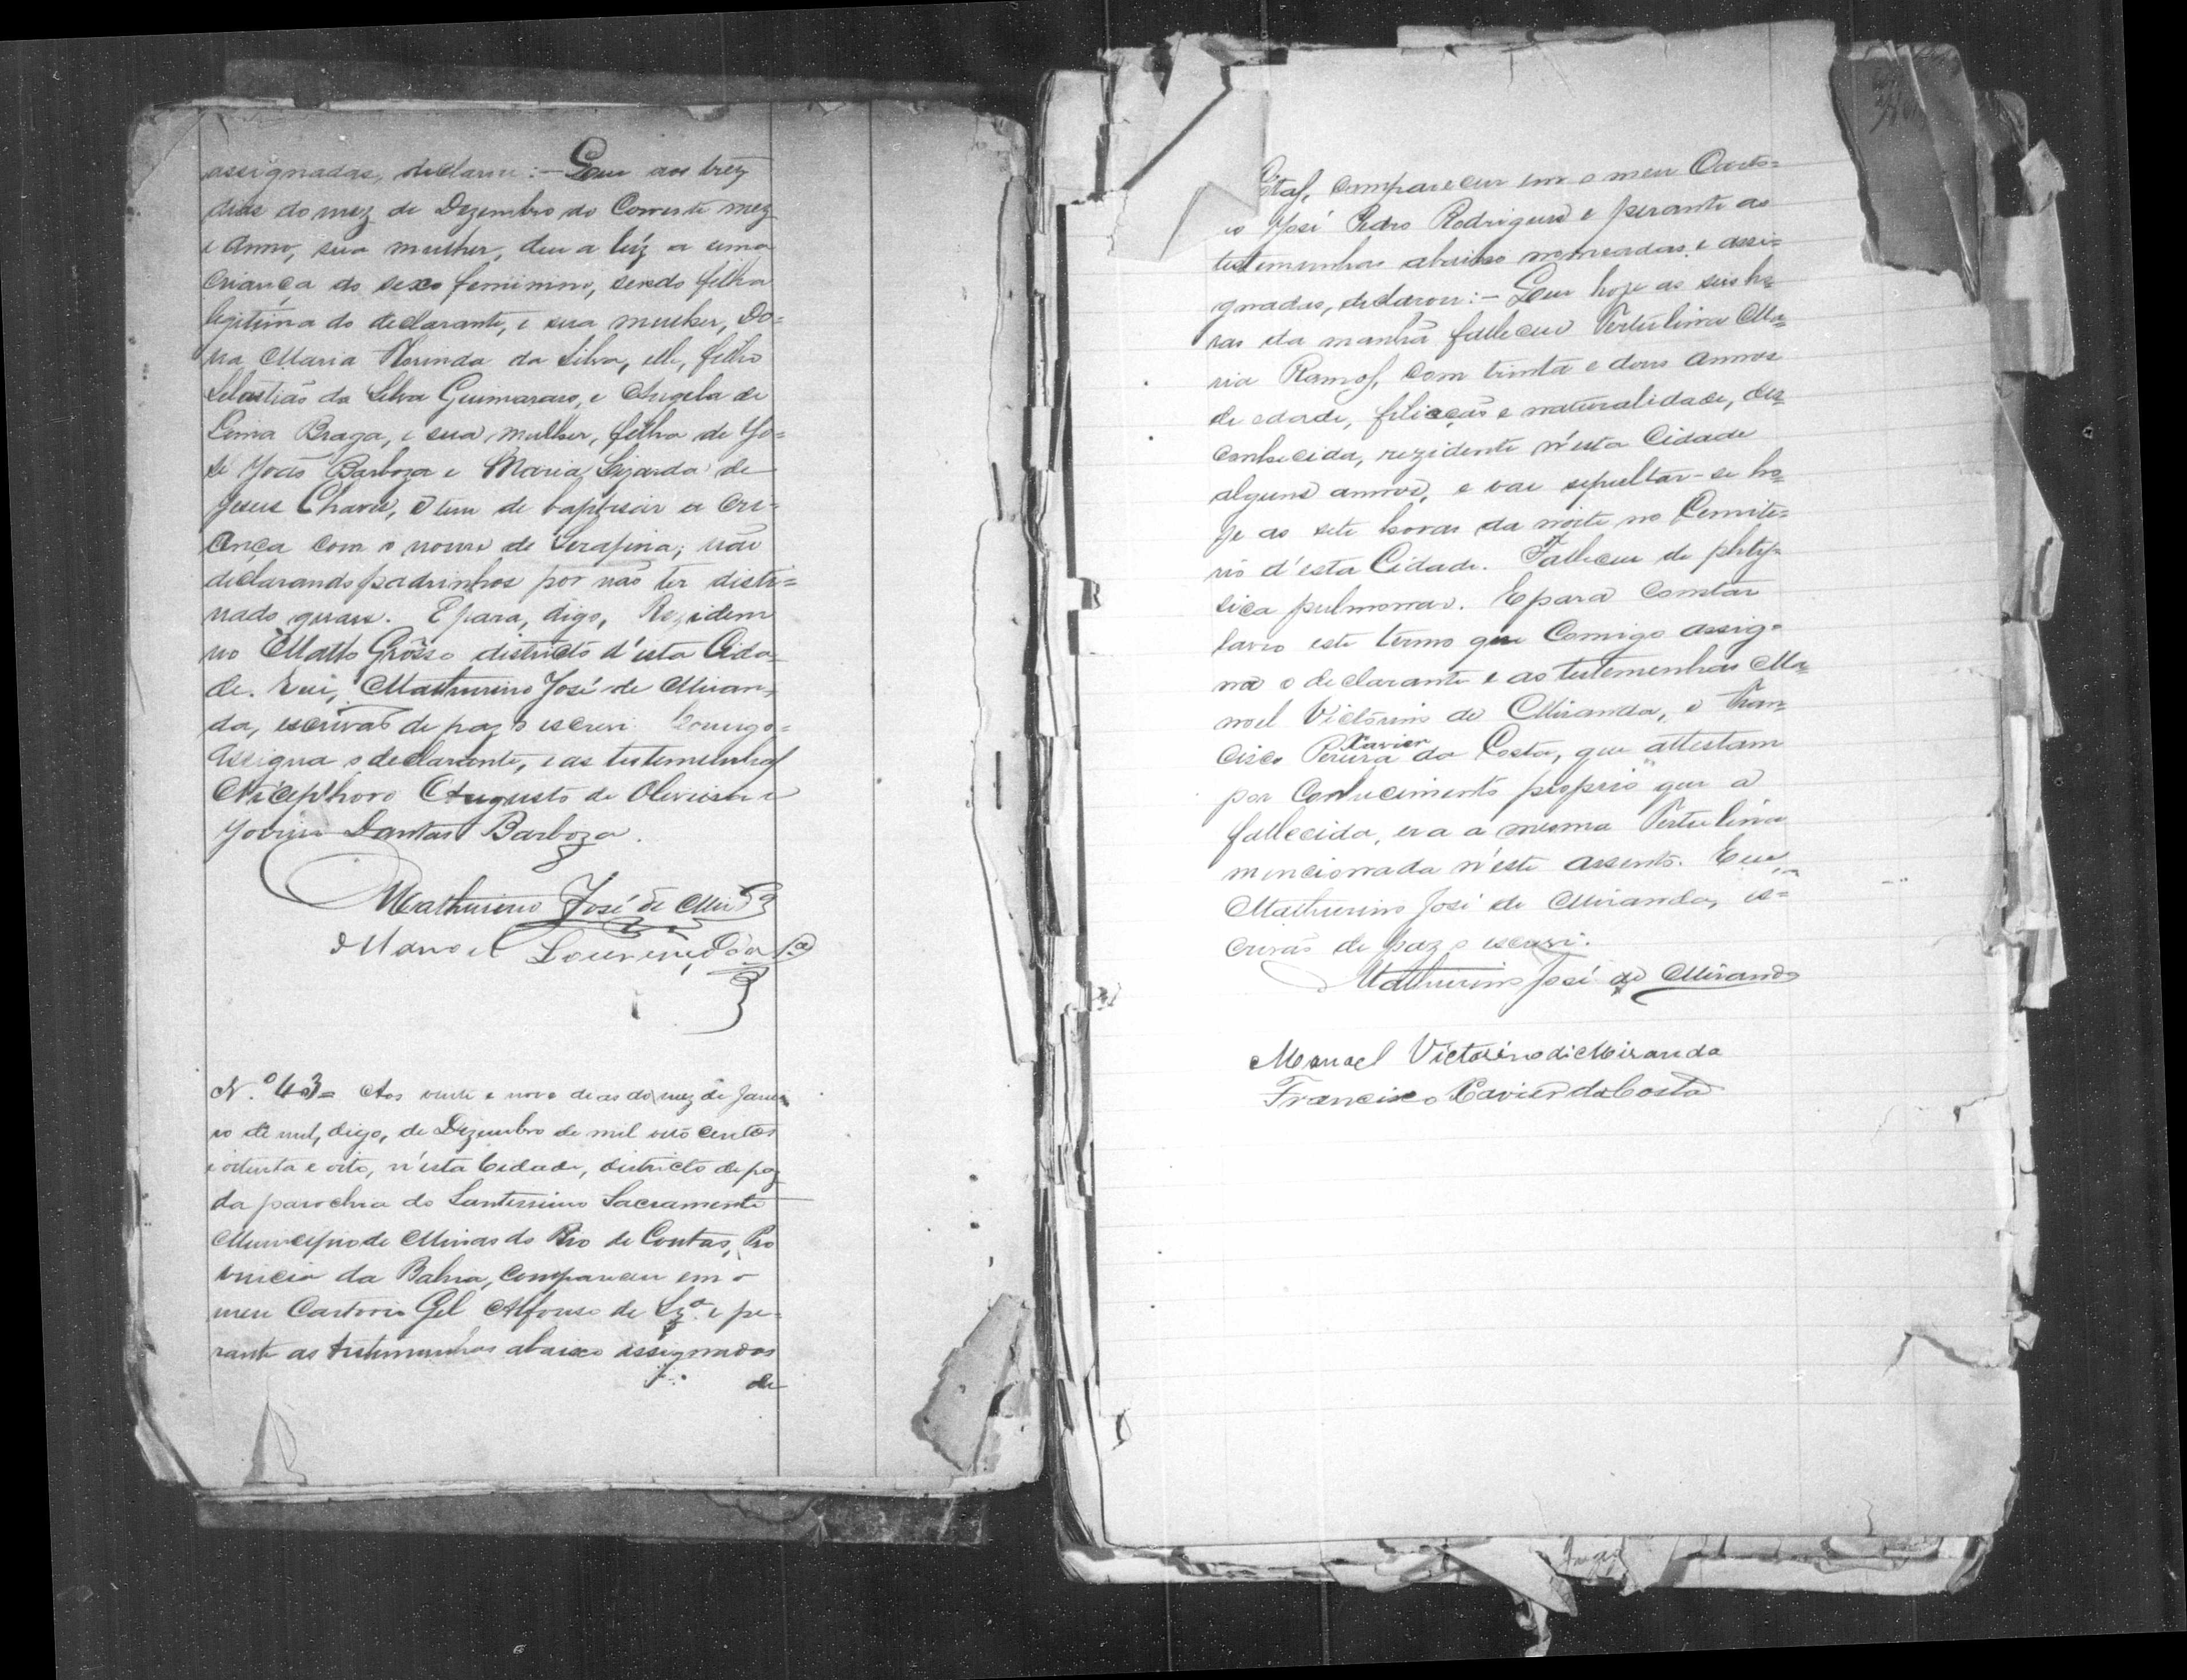 assignadas, declarou:— Que aos trez
dias do mez de Dezembro do Corrente mez
e Anno, sua mulher, deu a lúz a uma
Criança do sexo feminino, sendo filha
legitima do declarante, e sua mulher, Do=
na Maria Florinda da Silva, elle, filho
Sebastião da Silva Guimaraes, e Angela de
Lima Braga, e sua mulher, filha de Jo=
se João Barboza e Maria Lizarda de
Jesus Chaves, e tem de baptisar a Cri=
ança com o nome de Serafina; não
declarando padrinhos por não ter desti=
nado quaes. E para, digo, Rezidem
no Matto Grosso districto d'esta Cida=
de. Eu, Mathurino José de Miran=
da, escrivão de paz o escrevi Comigo=
assigna o declarante, e as testemunhas
Nicephoro Augusto de Oliveira e
Jovino Dantas Barboza.
Mathurino José de Mirda
Manoel Lourenço da Sa
N.º 43= Aos vinte e nove dias do mez de Janei
ro de mil, digo, de Dezembro de mil oito centos
e oitenta e oito, n'esta Cidade, districto de paz
da parochia do Santissimo Sacramento
Municipio de Minas do Rio de Contas, Pro
vincia da Bahia, compareceu em o
meu Cartorio Gil Affonso de Sza e pe=
rante as testemunhas abaixo assignadas
de
compareceu em o meu Carto=
io José Pedro Rodrigues e perante as
testemunhas abaixo nomeadas e assi=
gnadas, declarou:— Que hoje as seis ho=
ras da manhã falleceu Vertulina Ma=
ria Ramos, com trinta e dous annos
de edade, filiação e naturalidade, des=
conhecida, rezidente n'esta Cidade
alguns annos, e vae sepultar-se ho=
je as sete horas da noite no Cemite=
rio d'esta Cidade. Falleceu de phty=
sica pulmonar. E para constar
lavro este termo que Comigo assig=
na o declarante e as testemunhas Ma=
noel Victorino de Miranda, e Fran=
cisco Pereira Xavier da Costa, que attestam
por Conhecimento proprio que a
fallecida, era a mesma Vertulina
mencionada n'este assento. Eu,
Mathurino José de Miranda, es=
crivão de paz o escrevi.
Mathurino José de Miranda
Manoel Victorino de Miranda
Francisco Xavier da Costa